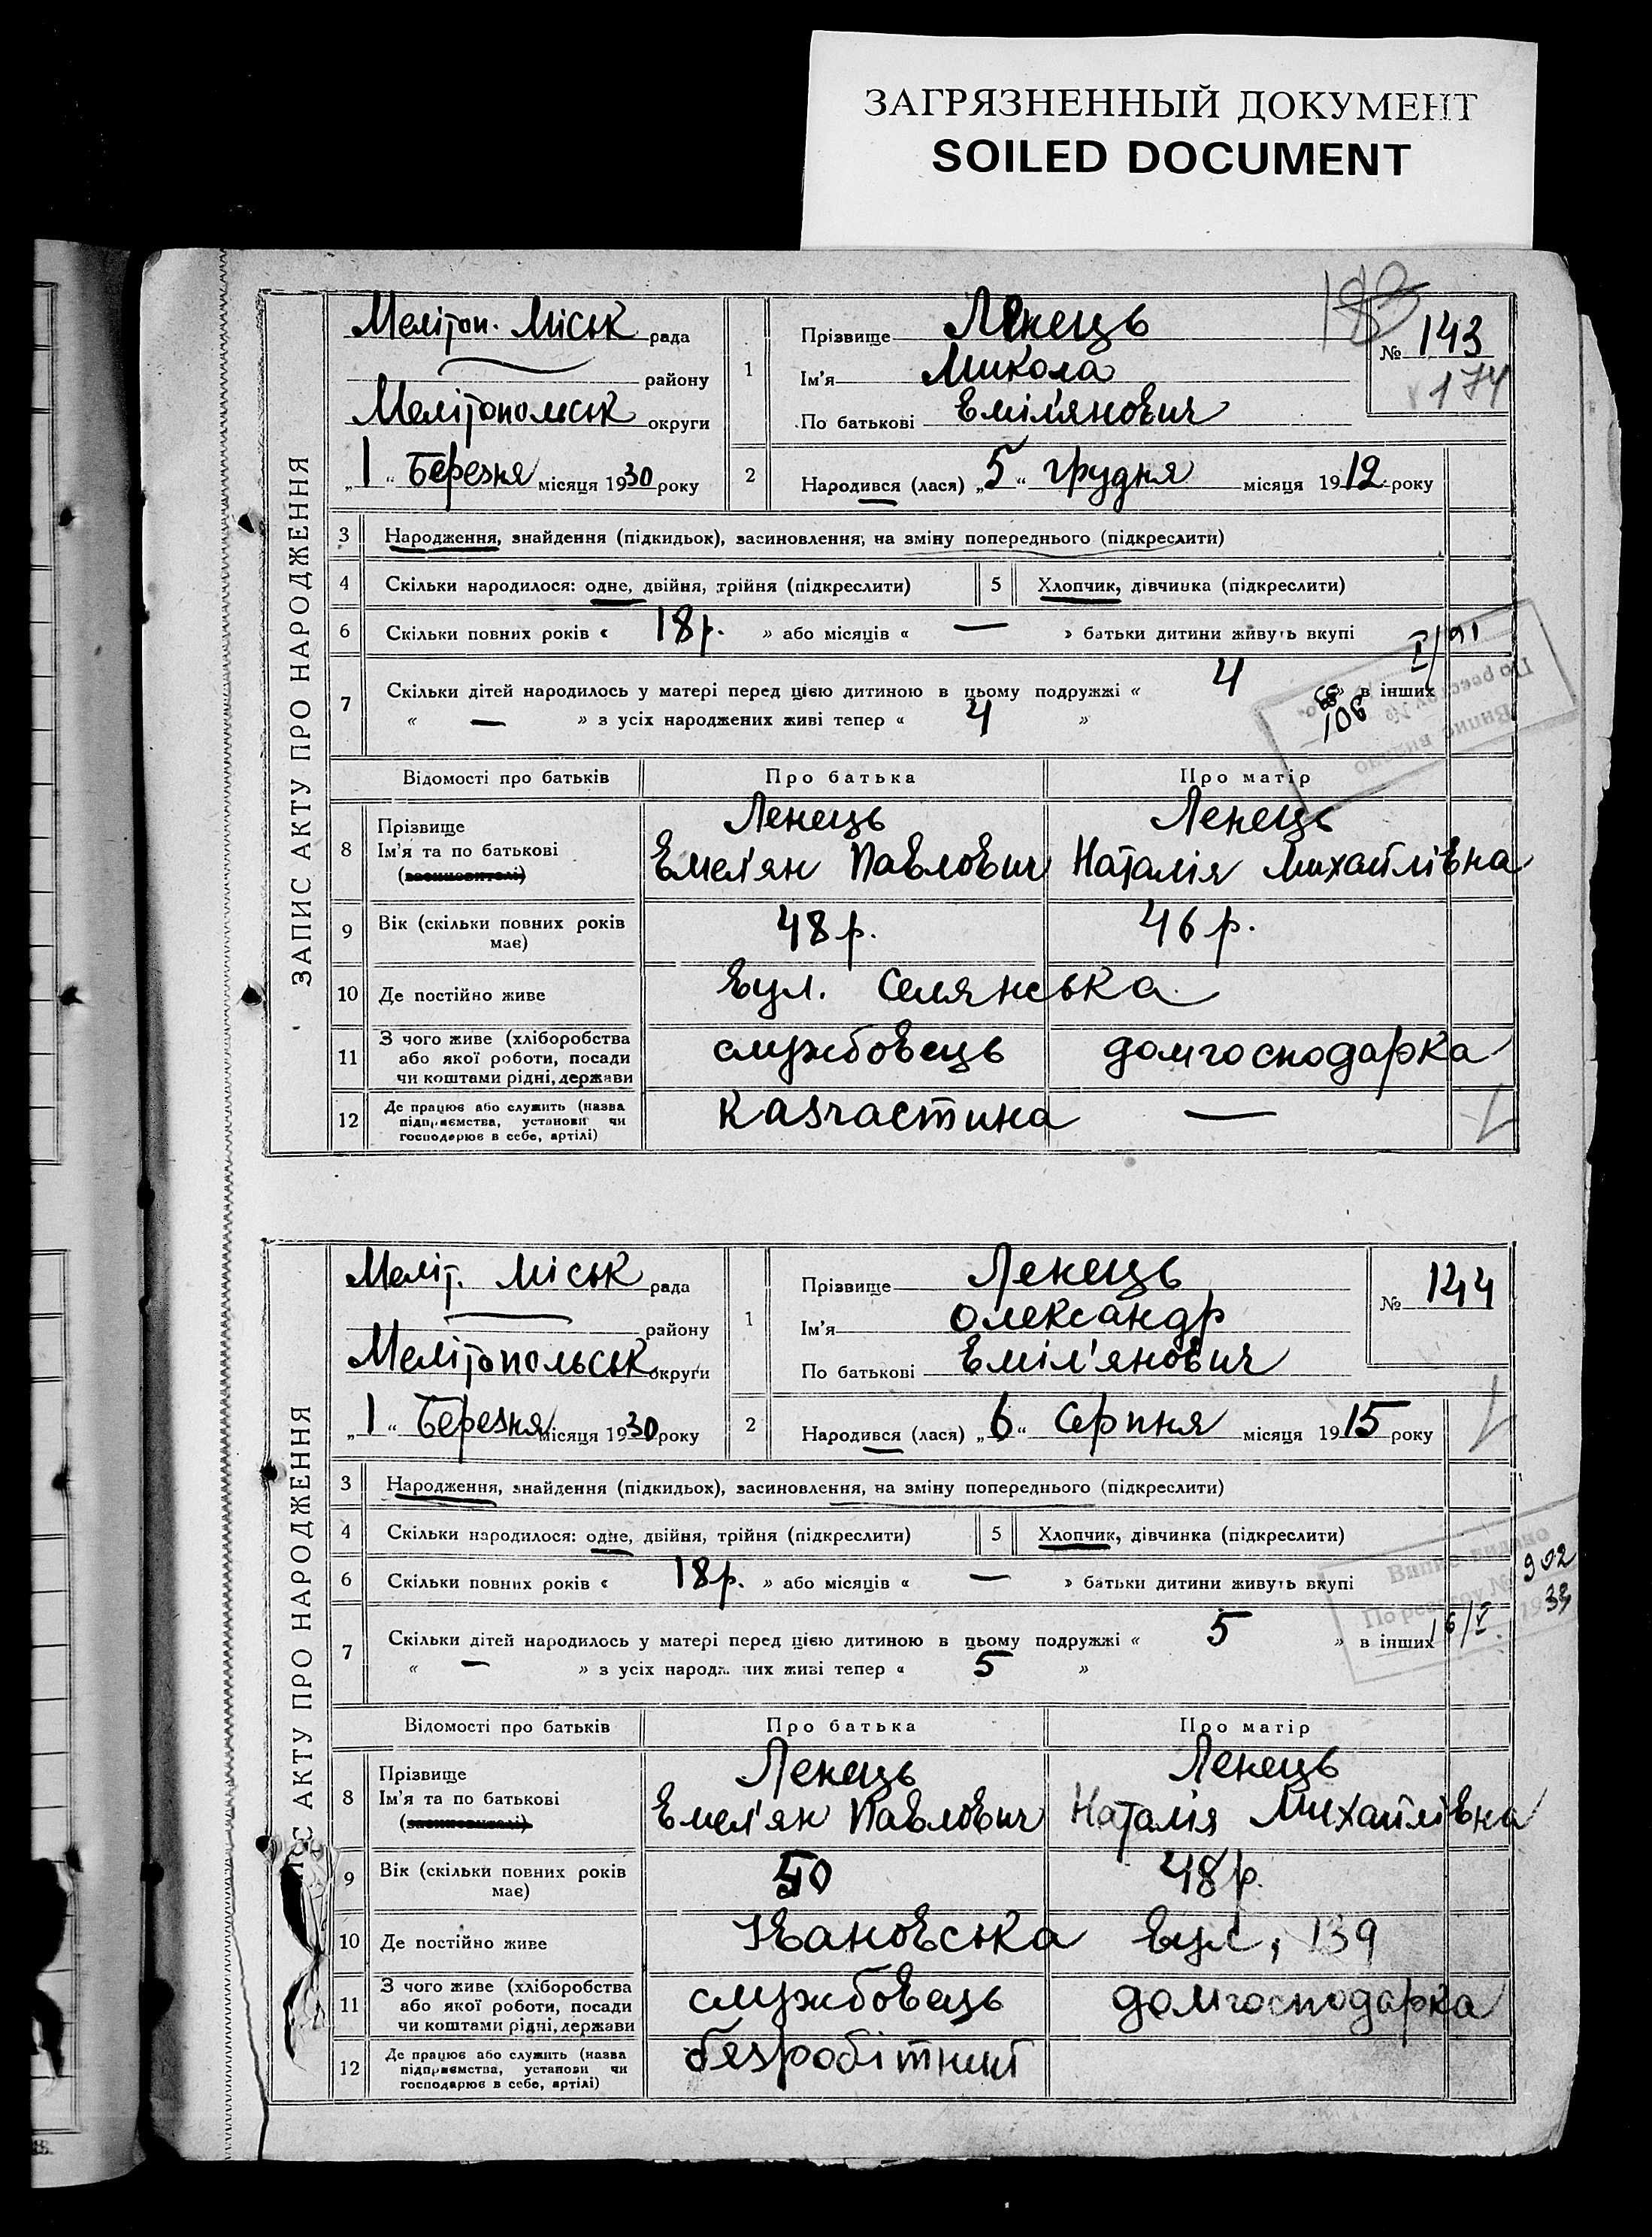 ЗАГРЯЗНЕННЫЙ ДОКУМЕНТ
SOILED DOCUMENT
ЗАПИС АКТУ ПРО НАРОДЖЕННЯ
Мелітоп. Міськ рада
району
Мелітопольськ округи
„1“ Березня місяця 1930 року
1
Прізвище Ленець
Ім'я Микола
По батькові Еміл'янович
№ 143
174
2
Народився (лася) „5“ грудня місяця 1912 року
3 Народження, знайдення (підкидьок), засиновлення, на зміну попереднього (підкреслити)
4 Скільки народилося: одне, двійня, трійня (підкреслити) 5 Хлопчик, дівчинка (підкреслити)
6 Скільки повних років « 18 р. » або місяців « — » батьки дитини живуть вкупі
7 Скільки дітей народилось у матері перед цією дитиною в цьому подружжі « 4 » в інших
« — » з усіх народжених живі тепер « 4 »
106
Відомості про батьків Про батька Про матір
8 Прізвище Ленець Ленець
Ім'я та по батькові Емел'ян Павлович Наталія Михайлівна
(засиновителі)
9 Вік (скільки повних років має) 48 р. 46 р.
10 Де постійно живе вул. Селянська
11 З чого живе (хліборобства
або якої роботи, посади
чи коштами рідні, держави службовець домгосподарка
12 Де працює або служить (назва
підприємства, установи чи
господарює в себе, артілі) Казчастина —
ЗАПИС АКТУ ПРО НАРОДЖЕННЯ
Меліт. Міськ рада
району
Мелітопольськ округи
„1“ Березня місяця 1930 року
1
Прізвище Ленець
Ім'я Олександр
По батькові Еміл'янович
№ 144
2
Народився (лася) „6“ Серпня місяця 1915 року
3 Народження, знайдення (підкидьох), засиновлення, на зміну попереднього (підкреслити)
4 Скільки народилося: одне, двійня, трійня (підкреслити) 5 Хлопчик, дівчинка (підкреслити)
6 Скільки повних років « 18 р. » або місяців « — » батьки дитини живуть вкупі
Випис видано
По реєстру №
902
33
16/V
7 Скільки дітей народилось у матері перед цією дитиною в цьому подружжі « 5 » в інших
« — » з усіх народжених живі тепер « 5 »
Відомості про батьків Про батька Про матір
8 Прізвище Ленець Ленець
Ім'я та по батькові Емел'ян Павлович Наталія Михайлівна
(засиновителі)
9 Вік (скільки повних років має) 50 48 р.
10 Де постійно живе Івановська вул, 139
11 З чого живе (хліборобства
або якої роботи, посади
чи коштами рідні, держави службовець домгосподарка
12 Де працює або служить (назва
підприємства, установи чи
господарює в себе, артілі) безробітний